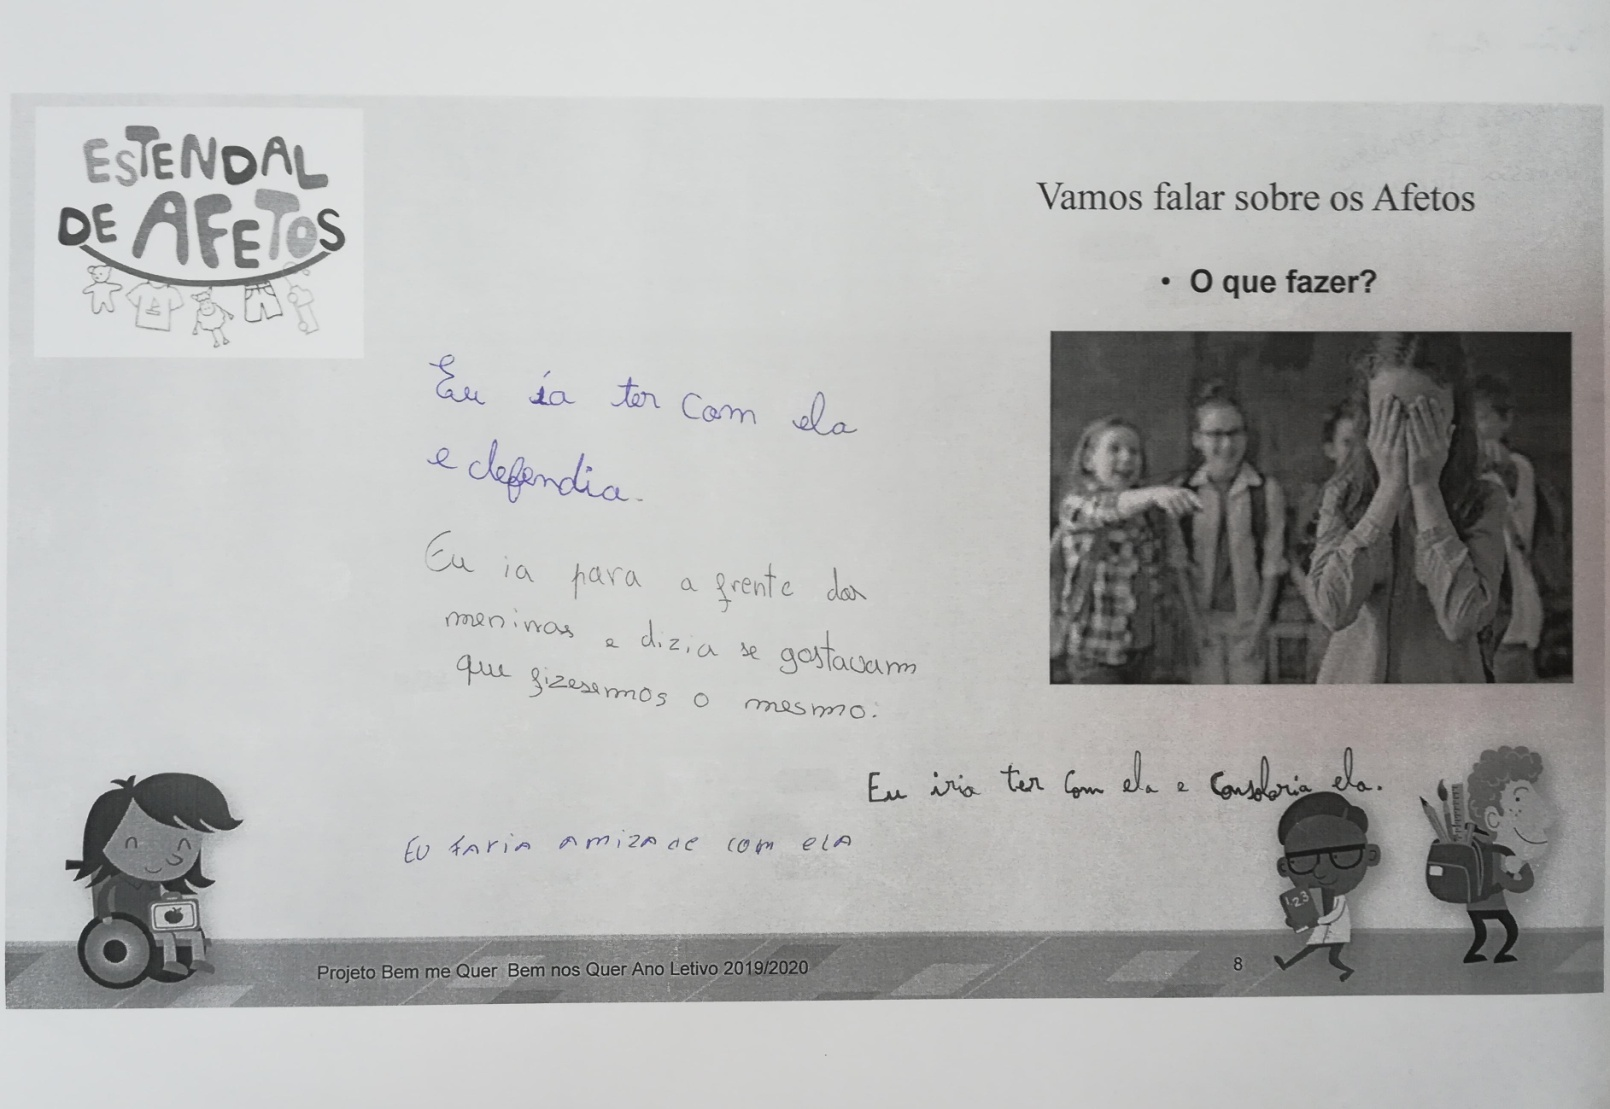 ESTENDAL
DE AFETOS
Vamos falar sobre os Afetos
• O que fazer?
Eu ía ter com ela
e defendia.
Eu ia para a frente das
meninas e dizia se gostavam
que fizesemos o mesmo.
Eu iria ter com ela e consolaria ela.
EU FARIA AMIZADE COM ELA
1 2 3
Projeto Bem me Quer Bem nos Quer Ano Letivo 2019/2020
8